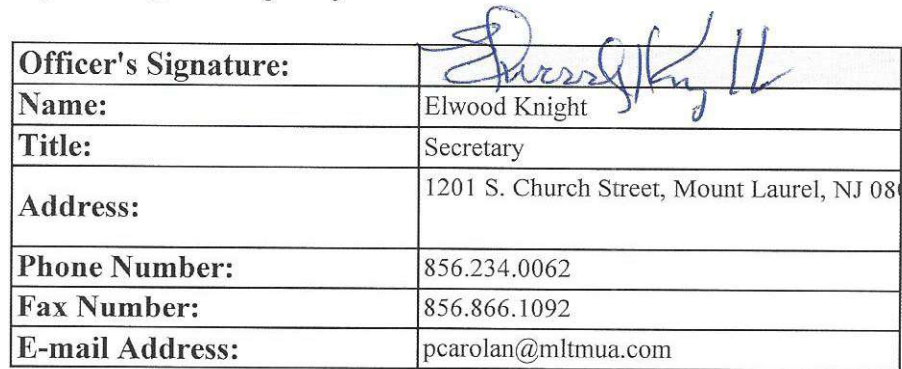 Officer's Signature: Elwood Knight
Name: Elwood Knight
Title: Secretary
Address: 1201 S. Church Street, Mount Laurel, NJ 08
Phone Number: 856.234.0062
Fax Number: 856.866.1092
E-mail Address: pcarolan@mltmua.com